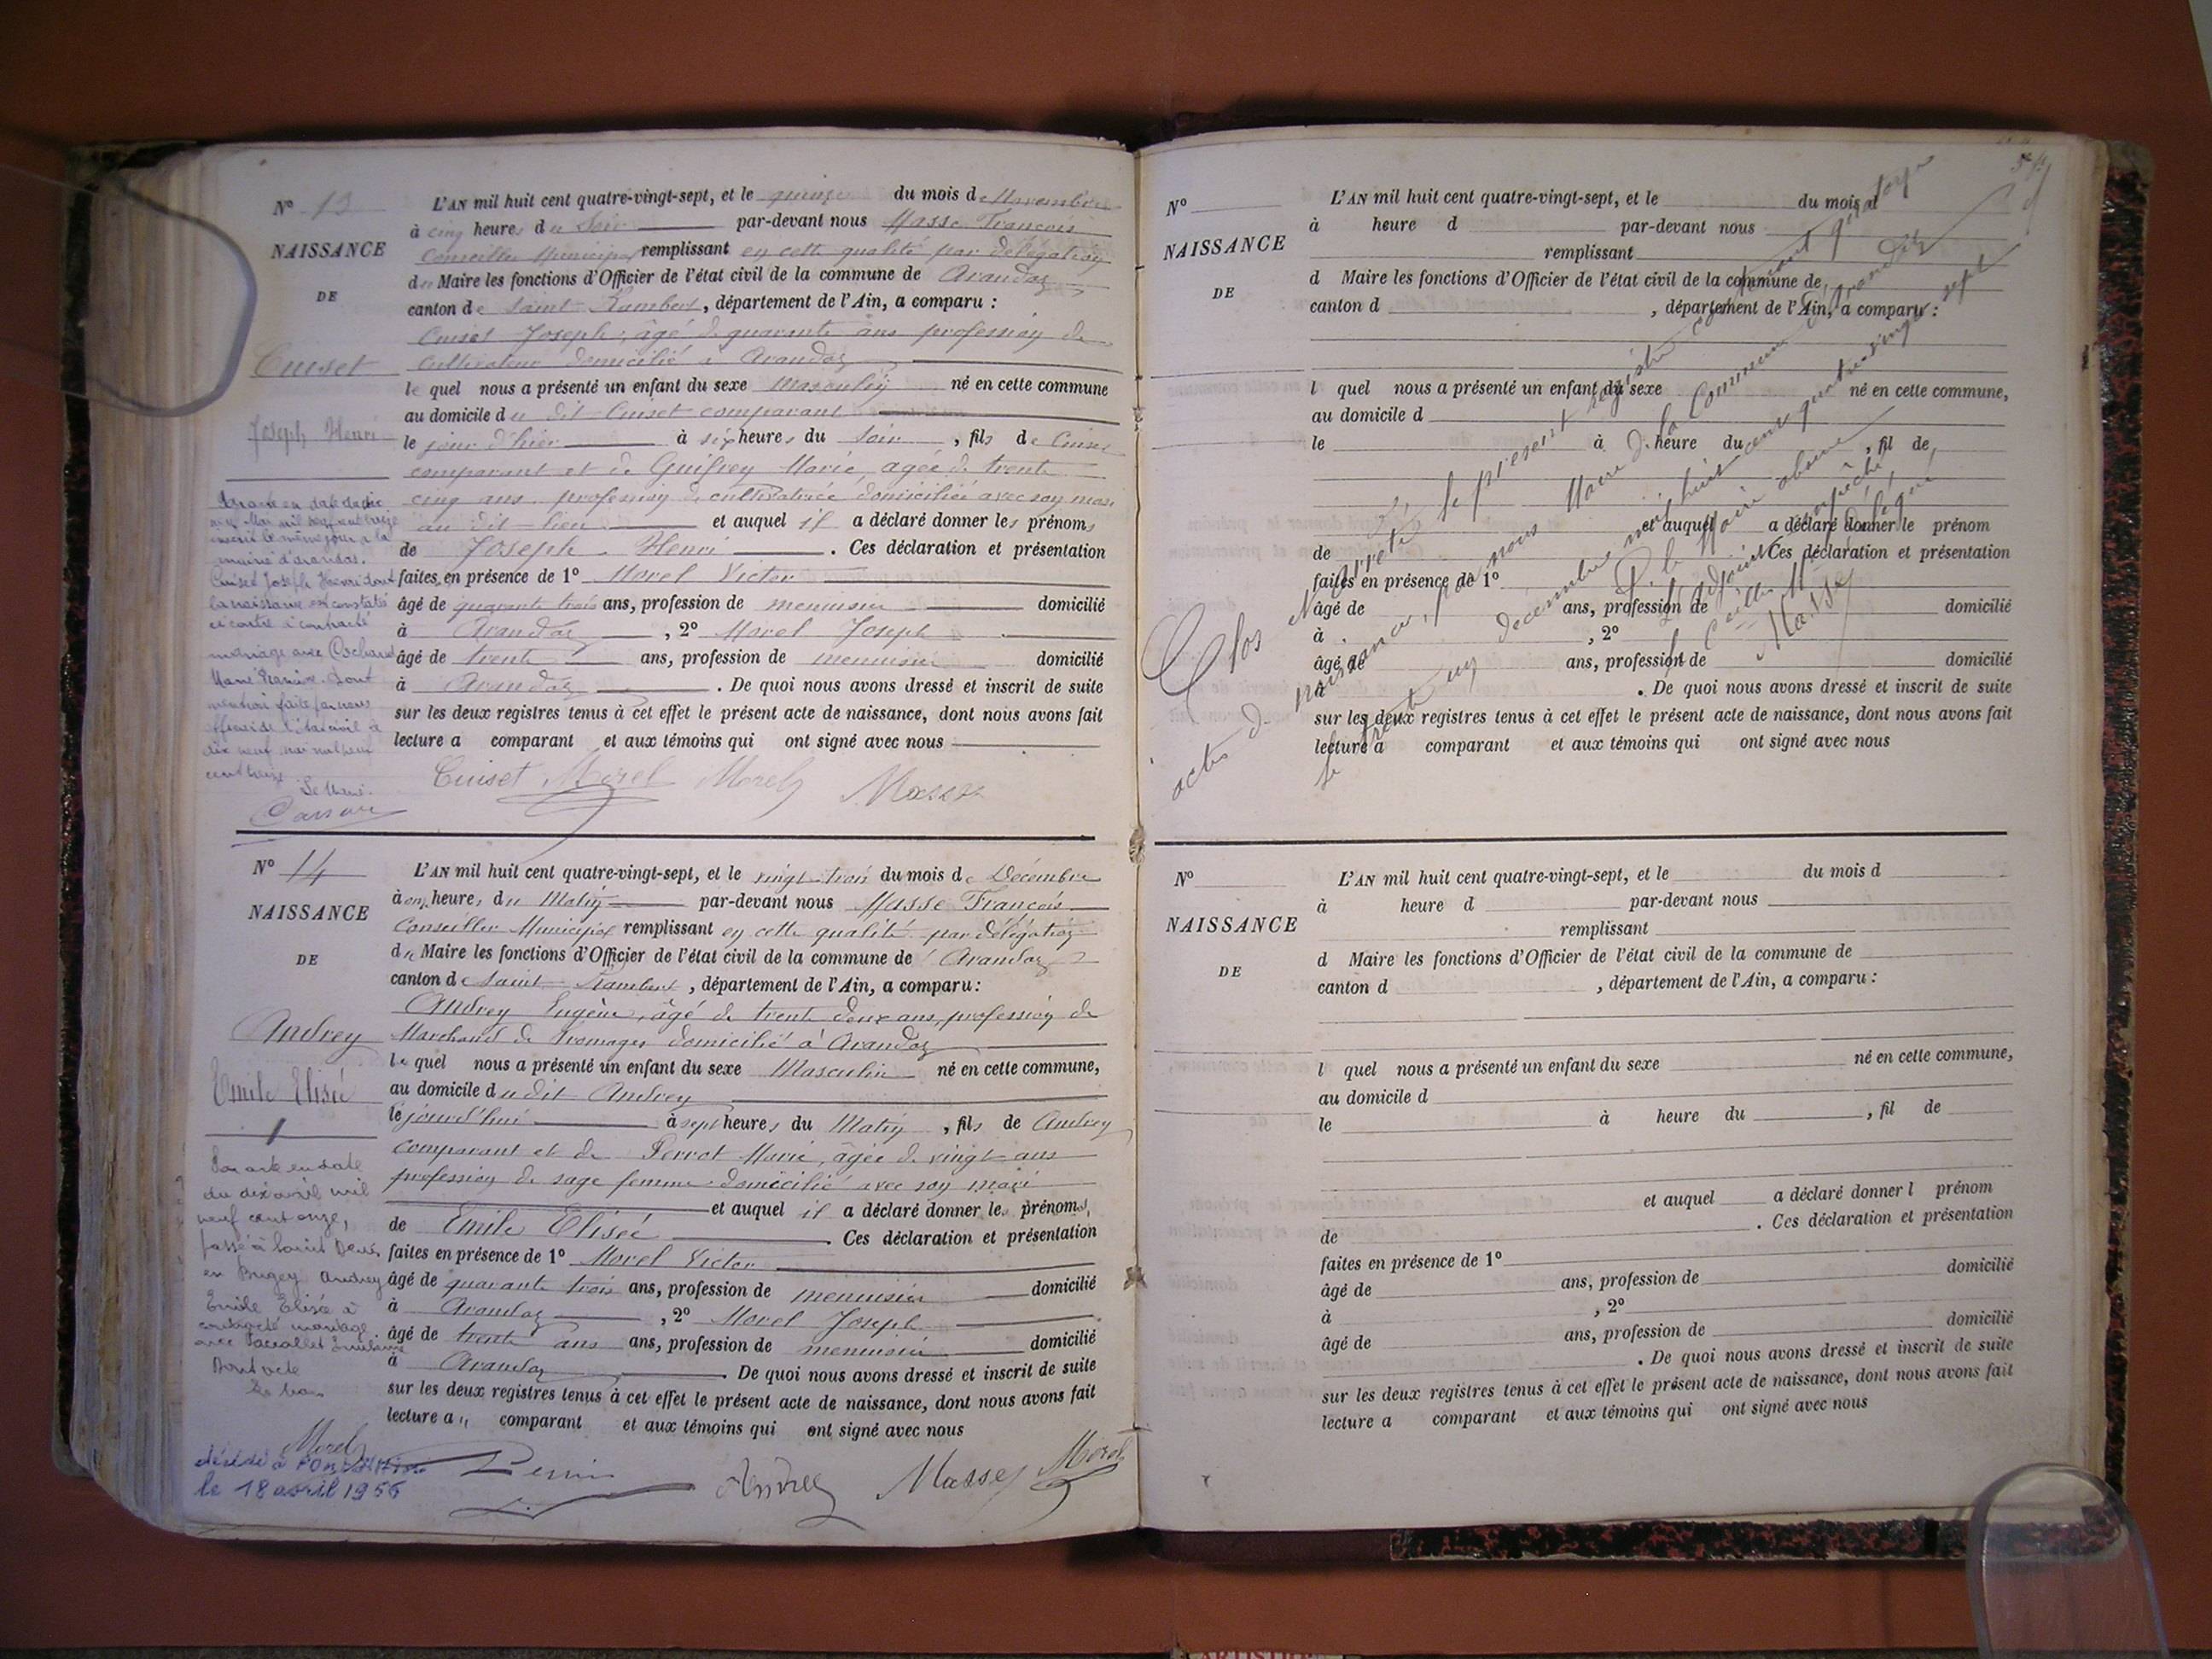 N° 13
NAISSANCE
DE
Cuiset
Joseph Henri
L'AN mil huit cent quatre-vingt-sept, et le quinze du mois de Novembre
à cinq heures du Soir par-devant nous Masse François
Conseiller Municipal remplissant en cette qualité par délégation
du Maire les fonctions d'Officier de l'état civil de la commune de Arandaz
canton de Saint-Rambert, département de l'Ain, a comparu :
Cuiset Joseph, âgé de quarante ans profession de
Cultivateur domicilié à Arandaz
le quel nous a présenté un enfant du sexe Masculin né en cette commune
au domicile du dit Cuiset comparant
le jour d'hier à six heures du soir, fils de Cuiset
comparant et de Guifrey Marie, agée de trente
cinq ans profession de cultivatrice domiciliée avec son mari
au dit-lieu et auquel il a déclaré donner les prénoms
de Joseph Henri. Ces déclaration et présentation
faites en présence de 1° Morel Victor
âgé de quarante trois ans, profession de menuisier domicilié
à Arandaz, 2° Morel Joseph
âgé de trente ans, profession de menuisier domicilié
à Arandaz. De quoi nous avons dressé et inscrit de suite
sur les deux registres tenus à cet effet le présent acte de naissance, dont nous avons fait
lecture a comparant et aux témoins qui ont signé avec nous
Cuiset Morel Morel Masse
mairie d'Arandas.
Cuiset Joseph Henri dont
la naissance est constatée
ci contre a contracté
mariage avec
dont
mention faite par nous
officier de l'état civil le
dix neuf mai mil neuf
cent treize
Le Maire.
N° 14
NAISSANCE
DE
Andrey
Emile Elisée
L'AN mil huit cent quatre-vingt-sept, et le vingt-trois du mois de Décembre
à onze heures du Matin par-devant nous Masse François
Conseiller Municipal remplissant en cette qualité par délégation
du Maire les fonctions d'Officier de l'état civil de la commune de Arandaz
canton de Saint-Rambert, département de l'Ain, a comparu :
Andrey Eugène, âgé de trente deux ans, profession de
Marchand de Fromages domicilié à Arandaz
le quel nous a présenté un enfant du sexe Masculin né en cette commune,
au domicile du dit Andrey
le jourd'hui à sept heures du Matin, fils de Andrey
comparant et de Perrot Marie, âgée de vingt ans
profession de sage femme domicilié avec son mari
et auquel il a déclaré donner les prénoms,
de Emile Elisée Ces déclaration et présentation
faites en présence de 1° Morel Victor
âgé de quarante trois ans, profession de menuisier domicilié
à Arandaz, 2° Morel Joseph
âgé de trente ans ans, profession de menuisier domicilié
à Arandaz. De quoi nous avons dressé et inscrit de suite
sur les deux registres tenus à cet effet le présent acte de naissance, dont nous avons fait
lecture au comparant et aux témoins qui ont signé avec nous
Par acte en date
du dix avril mil
neuf cent onze,
passé à Saint Denis
en Bugey Andrey
Emile Elisée a
contracté mariage
avec
Dont acte
Morel
décédé à
le 18 avril 1956
Perrin Andrey Masse Morel
N°
NAISSANCE
DE
L'AN mil huit cent quatre-vingt-sept, et le du mois d
à heure d par-devant nous
remplissant
d Maire les fonctions d'Officier de l'état civil de la commune de
canton d , département de l'Ain, a comparu :
l quel nous a présenté un enfant du sexe né en cette commune,
au domicile d
le à heure du , fil de
et auquel a déclaré donner le prénom
de Ces déclaration et présentation
faites en présence de 1°
âgé de ans, profession de domicilié
à , 2°
âgé de ans, profession de domicilié
à . De quoi nous avons dressé et inscrit de suite
sur les deux registres tenus à cet effet le présent acte de naissance, dont nous avons fait
lecture a comparant et aux témoins qui ont signé avec nous
Clos et arrêté le présent registre contenant quatorze
actes de naissance, par nous Maire de la Commune d'Arandaz
le trente un décembre mil huit cent quatre-vingt sept
P. le Maire absent
l'adjoint empêché
le Conseiller Mpal délégué
Masse
N°
NAISSANCE
DE
L'AN mil huit cent quatre-vingt-sept, et le du mois d
à heure d par-devant nous
remplissant
d Maire les fonctions d'Officier de l'état civil de la commune de
canton d , département de l'Ain, a comparu :
l quel nous a présenté un enfant du sexe né en cette commune,
au domicile d
le à heure du , fil de
et auquel a déclaré donner l prénom
de . Ces déclaration et présentation
faites en présence de 1°
âgé de ans, profession de domicilié
à , 2°
âgé de ans, profession de domicilié
. De quoi nous avons dressé et inscrit de suite
sur les deux registres tenus à cet effet le présent acte de naissance, dont nous avons fait
lecture a comparant et aux témoins qui ont signé avec nous